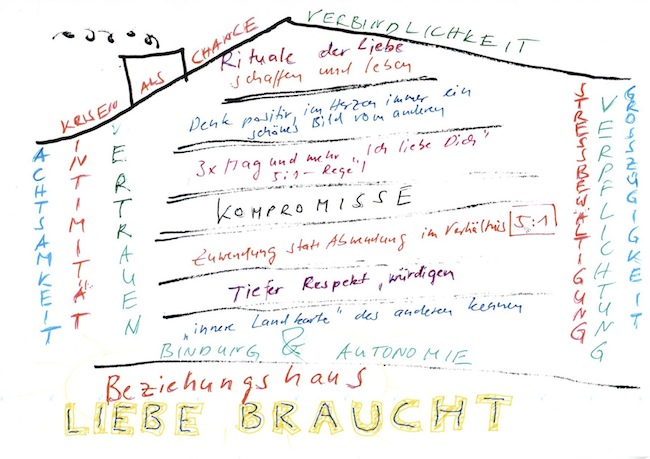 KRISEN ALS CHANCE
VERBINDLICHKEIT
Rituale der Liebe
schaffen und leben
Denke positiv, im Herzen immer ein
schönes Bild vom anderen
3x tag und mehr "Ich liebe Dich"
5:1-Regel
KOMPROMISSE
Zuwendung statt Abwendung im Verhältnis 5:1
Tiefer Respekt, würdigen
"innere Landkarte" des anderen kennen
BINDUNG & AUTONOMIE
ACHTSAMKEIT
INTIMITÄT
VERTRAUEN
STRESSBEWÄLTIGUNG
VERPFLICHTUNG
GROSSZÜGIGKEIT
Beziehungshaus
LIEBE BRAUCHT